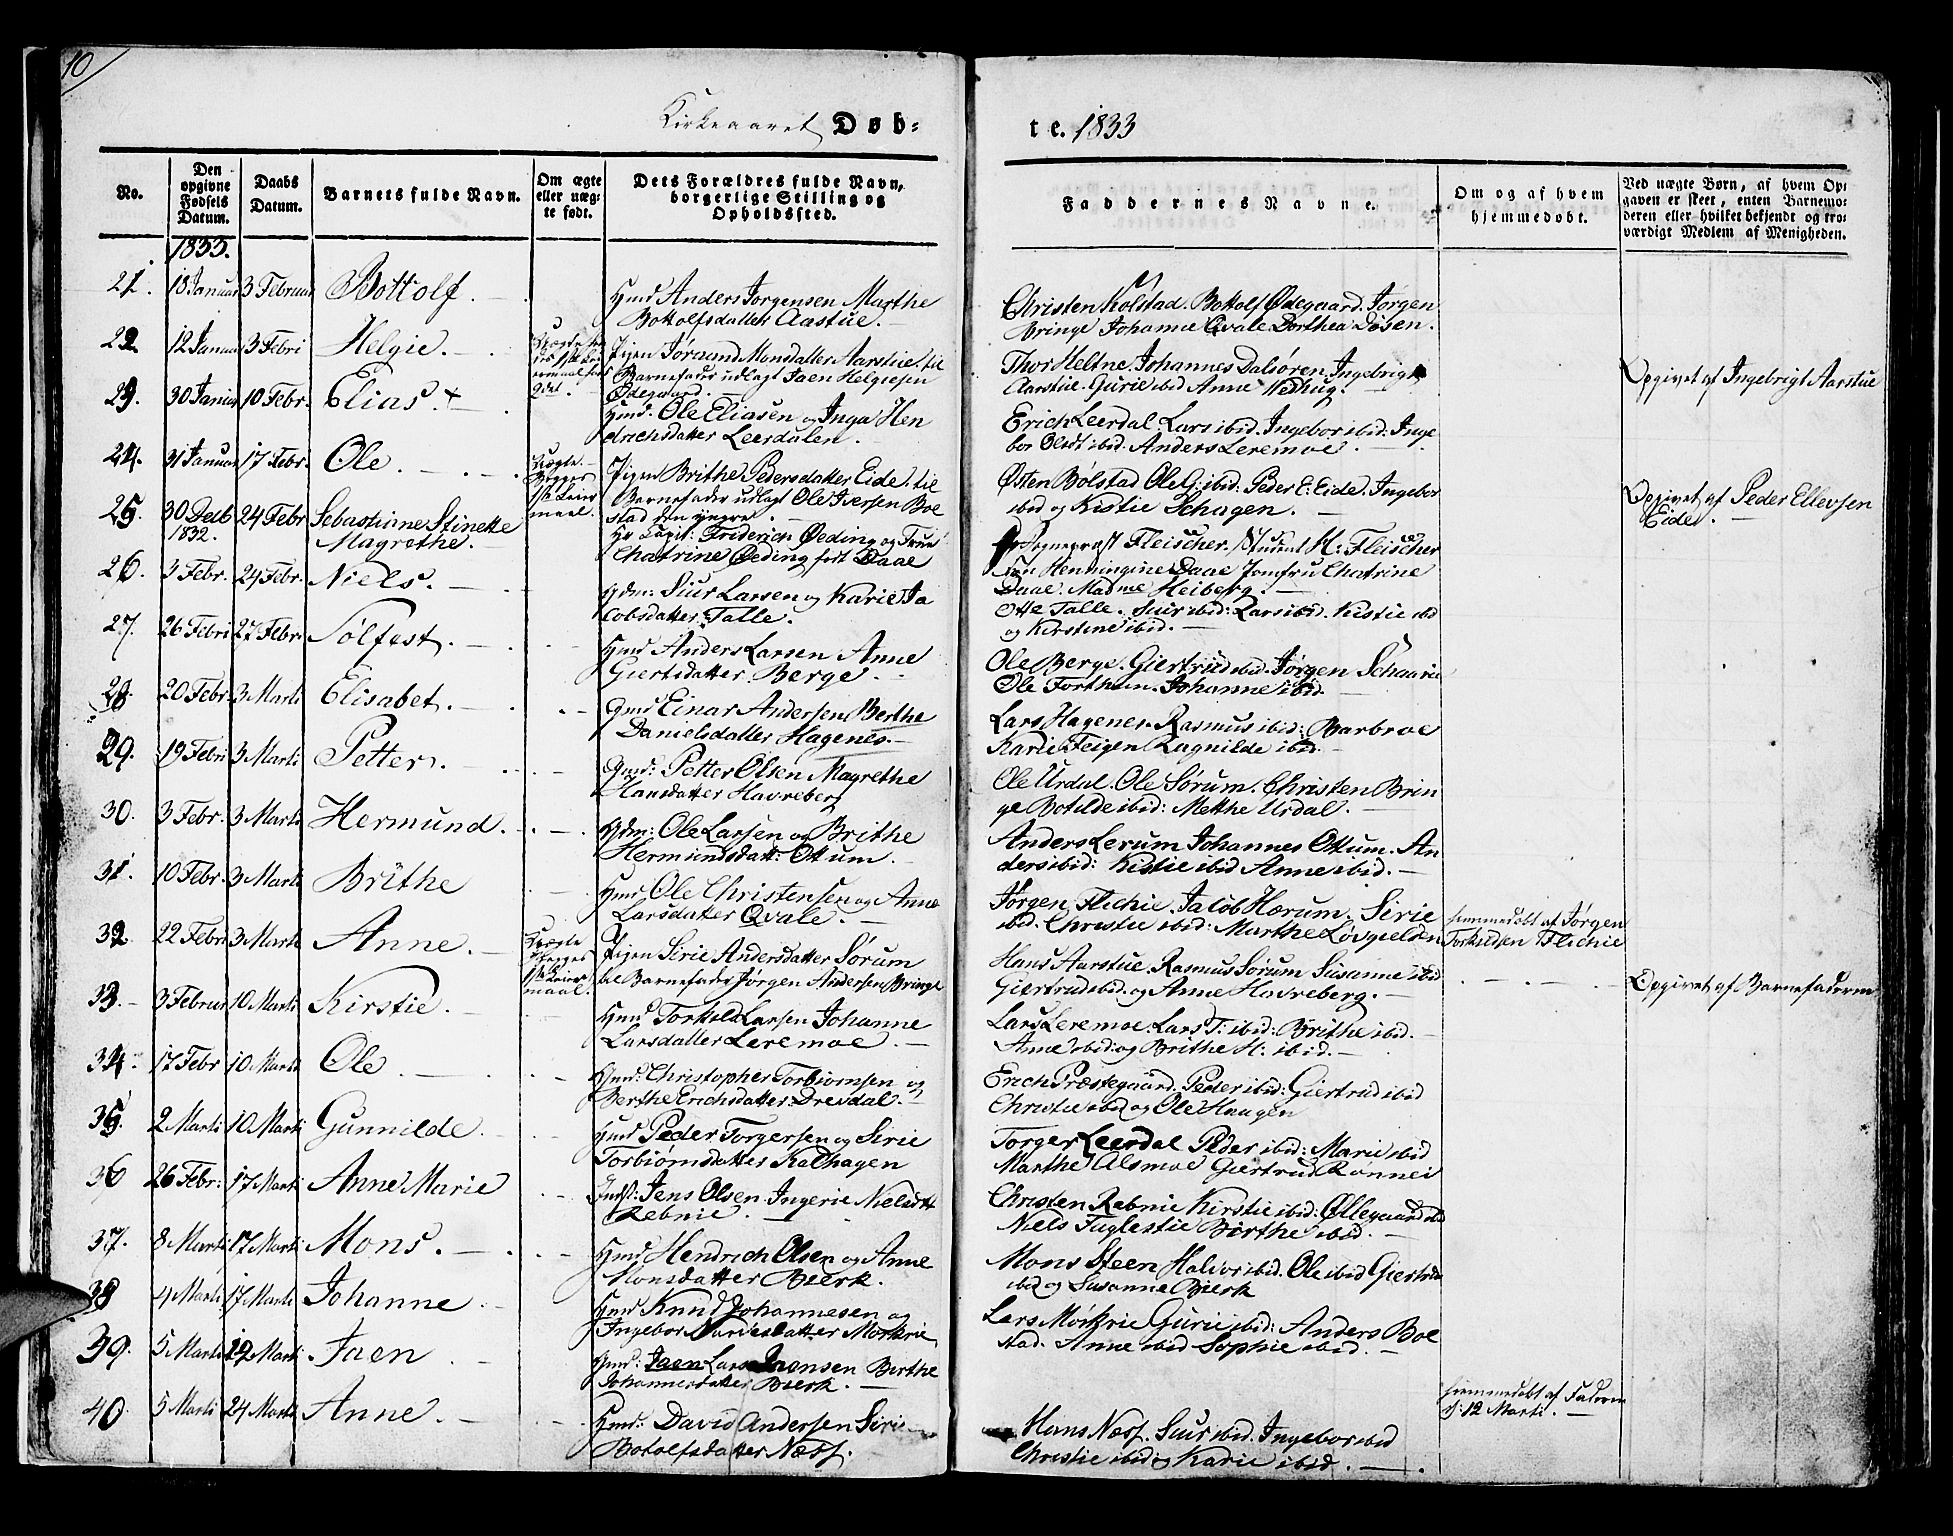 10
Kirkeaaret Døb-
te. 1833
No.
Den opgivne Fødsels Datum.
Daabs Datum.
Barnets fulde Navn.
Om ægte eller uæg-te født.
Dets Forældres fulde Navn, borgerlige Stilling og Opholdssted.
Faddernes Navne.
Om og af hvem hjemmedøbt.
Ved uægte Børn, af hvem Op-gaven er skeet, enten Barnemo-deren eller hvilket bekjendt og tro-værdigt Medlem af Menigheden.
1833.
21. 18 Januar 3 Februar Bottolf.
Gmd Anders Jørgensen Marthe
Bottolfsdatter Aastue.
Christen Kolstad. Bottolf Ødegaard. Jørgen
Bringe Johanne Qvale Dorthea Døsen.
22. 12 Januar 3 Febri Helgie.
Uægte
Pigen Jøraand Monsdatter Aarstue. til
Barnefader udlagt Jaen Helgesen
Ødegaard.
Thor Heltne. Johannes Dalsøren. Ingebrigt
Aarstue. Gurie ibid Anne Vedhug.
Opgivet af Ingebrigt Aarstue
23. 30 Januar 10 Febr. Elias. +
Gmd. Ole Eliasen og Inga Hen
drichsdatter Leerdalen.
Erich Leerdal. Lars ibid. Ingebor ibid. Inge
bor Olsdt ibid. Anders Leremoe.
24. 31 Januar 17 Febr. Ole.
Uægte.
Begges
1ste Leier
maal.
Pigen Brithe Pedersdatter Eide. til
Barnefader udlagt Ole Iversen Bol
stad den yngre.
Østen Bølstad Ole G: ibid: Peder E: Eide. Ingebor
ibid og Kistie Schagen.
Opgivet af Peder Ellevsen
Eide.
25. 30 Decb 1832. 24 Febr Sebastiane Stinette
Magrethe.
Hr Capit: Friderich Øeding og Frue
Chatrine Øeding født Daae
Hr Sogneprest Fleischer. Student H: Fleischer
Henningine Daae Jomfru Chatrine
Daae. Madme Heiberg.
26. 3 Febr. 24 Febr. Niels.
Gdm: Siur Larsen og Karie Ja
cobsdatter Talle.
Otte Talle. Siur ibid: Lars ibid. Kistie ibid
og Kirstine ibid.
27. 26 Febri 27 Febr. Sølfest.
Gmd Anders Larsen Anne
Giertsdatter Berge.
Ole Berge. Giertrud ibid. Jørgen Schaarie
Ole Forthun. Johanne ibid.
28. 20 Febr. 3 Marti Elisabet.
Gmd Einar Andersen Berthe
Danielsdatter Hagenes.
Lars Hagenes. Rasmus ibid: Barbroe
Karie Feigen Ragnilde ibid.
29. 19 Febri 3 Marti Petter.
Gmd: Petter Olsen Magrethe
Hansdatter Havreberg
Ole Urdal. Ole Sørum. Christen Brin
ge Botilde ibid: Metthe Urdal.
30. 3 Febr. 3 Marti Hermund.
Gdm: Ole Larsen og Brithe
Hermundsdatt: Ottum.
Anders Lerum Johannes Ottum. An
ders ibid: Kistie ibid Anne ibid.
31. 10 Febr. 3 Marti Brithe
Gmd Ole Christensen og Anne
Larsdatter Qvale.
Jørgen Flichie. Jacob Hærum. Sirie
ibid. Christie ibid: Marthe Løvgielden
hjemmedøbt af Jørgen
Torkildsen Flichie
32. 22 Febri 3 Marti Anne.
Uægte
Begges
1ste Leier
maal.
Pigen Sirie Andersdatter Sørum
til Barnefader Jørgen Andersen Bringe
Hans Aarstue. Rasmus Sørum Susanne ibid
Giertrud ibid. og Anne Havreberg.
Opgivet af Barnefaderen
33. 3 Februar 10 Marti Kirstie.
Gmd Torkild Larsen Johanne
Larsdatter Leremoe.
Lars Leremoe. Lars T: ibid: Brithe ibid.
Anne ibid: og Brithe H: ibid.
34. 17 Febr 10 Marti Ole.
Gmd: Christopher Torbiornsen og
Berthe Erichsdatter Drevdal.
Erich Præstegaard. Peder ibid: Giertrud ibid
Christie ibid og Ole Haugen
35. 2 Marti 10 Marti Gunnilde.
Gmd Peder Torgersen og Sirie
Torbiornsdatter Kalhagen
Torger Leerdal Peder ibid: Marie ibid
Marthe Alsmoe Giertrud Rønnei
36 26 Febr: 17 Marti Anne Marie
Indst: Jens Olsen. Ingerie Nielsdtt
Rebnie.
Christen Rebnie Kirstie ibid: Ollegaard ibid
Niels Fuglestie Birthe ibid.
37. 8 Marti 17 Marti Mons.
Gmd Hendrich Olsen og Anne
Monsdatter Bierk.
Mons Steen Halvor ibid. Ole ibid Giertrud
ibid og Susanne Bierk
38 4 Marti 17 Marti Johanne.
Gmd Knud Johannesen og
Ingebor Mørkrie
Lars Mørkrie Gurie ibid: Anders Bol
stad. Anne ibid Sophie ibid.
39. 5 Marti Marti Jaen.
Gmd: Jaen Jaensen Berthe
Johannesdatter Bierk.
40. 5 Marti 24 Marti Anne.
Gmd: David Andersen Sirie
Botolfsdatter Næss.
Hans Næss. Siur ibid. Ingebor ibid
Christie ibid og Karie ibid.
hjemmedøbt af Faderen
d: 12 Marti.